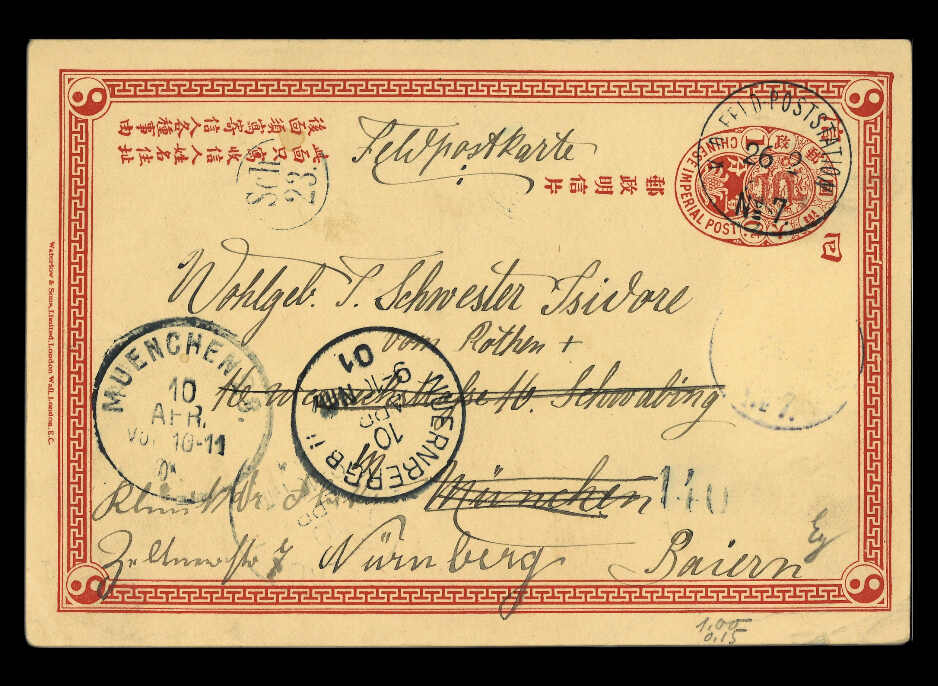 後面須寫寄信人各種事由
此面只寫收信人姓名住址
郵政明信片
Feldpostkarte
K.D. FELD-POSTSTATION
26 2
No 7.
CHINESE IMPERIAL POST
四
Sch
23.
Wohlgeb. T. Schwester Isidore
vom Rothen +
Schwabing
München
140
MUENCHEN
10
APR.
VOR. 10-11
NUERNBERG
10
APR
9-10
01
Zeltnerstr 7 Nürnberg Baiern
1,00
0,15
Waterlow & Sons, Limited, London Wall, London, E.C.